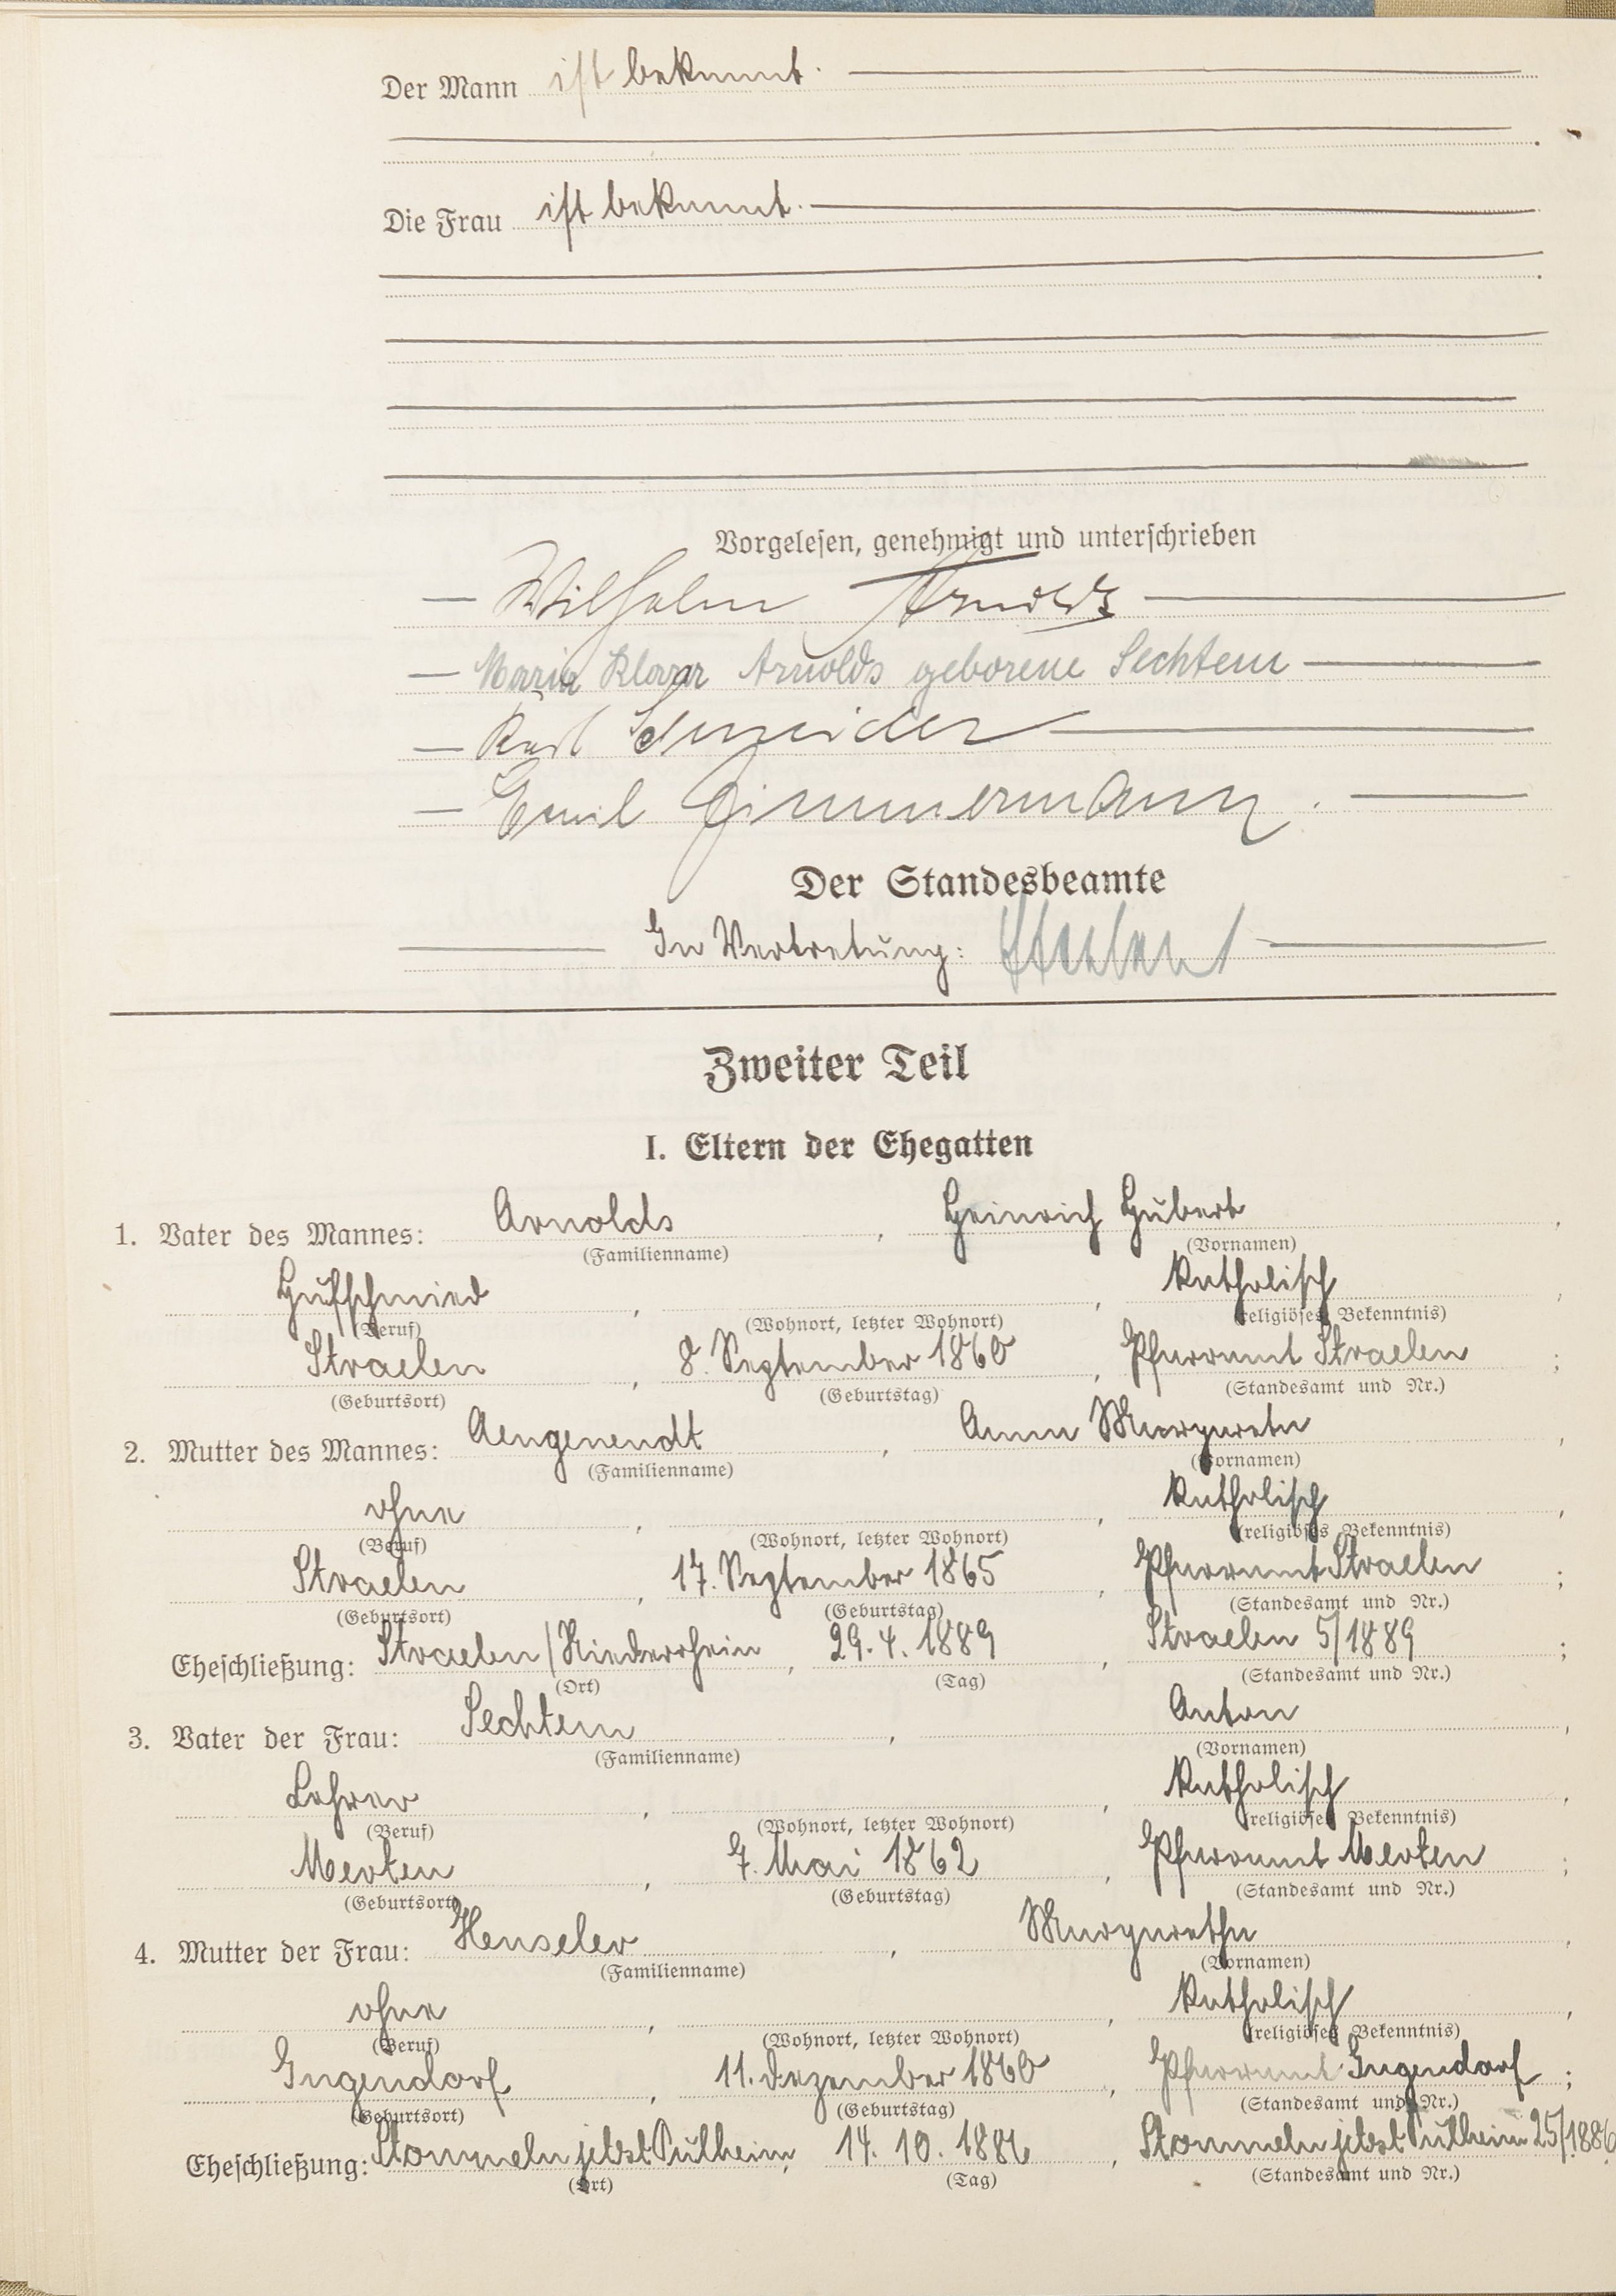 Der Mann ist bekannt.
Die Frau ist bekannt.
Vorgelesen, genehmigt und unterschrieben
Wilhelm Arnolds
Maria Klara Arnolds geborene Sechtem
Karl Schneider
Emil Zimmermann.
Der Standesbeamte
In Vertretung:
Zweiter Teil
I. Eltern der Ehegatten
1. Vater des Mannes: Arnolds, Heinrich Hubert,
(Familienname) (Vornamen)
Hufschmied, , katholisch,
(Beruf) (Wohnort, letzter Wohnort) (religiöses Bekenntnis)
Straelen, 8. September 1860, Pfarramt Straelen;
(Geburtsort) (Geburtstag) (Standesamt und Nr.)
2. Mutter des Mannes: Aengenendt, Anna Margareta,
(Familienname) (Vornamen)
ohne, , katholisch,
(Beruf) (Wohnort, letzter Wohnort) (religiöses Bekenntnis)
Straelen, 17. September 1865, Pfarramt Straelen;
(Geburtsort) (Geburtstag) (Standesamt und Nr.)
Eheschließung: Straelen/Niederrhein, 29. 4. 1889, Straelen 5/1889;
(Ort) (Tag) (Standesamt und Nr.)
3. Vater der Frau: Sechtem, Anton,
(Familienname) (Vornamen)
Lehrer, , katholisch,
(Beruf) (Wohnort, letzter Wohnort) (religiöses Bekenntnis)
Merten, 7. Mai 1862, Pfarramt Merten;
(Geburtsort) (Geburtstag) (Standesamt und Nr.)
4. Mutter der Frau: Henseler, Margaretha,
(Familienname) (Vornamen)
ohne, , katholisch,
(Beruf) (Wohnort, letzter Wohnort) (religiöses Bekenntnis)
Ingendorf, 11. Dezember 1860, Pfarramt Ingendorf;
(Geburtsort) (Geburtstag) (Standesamt und Nr.)
Eheschließung: Stommeln jetzt Pulheim, 14. 10. 1886, Stommeln jetzt Pulheim 25/1886.
(Ort) (Tag) (Standesamt und Nr.)